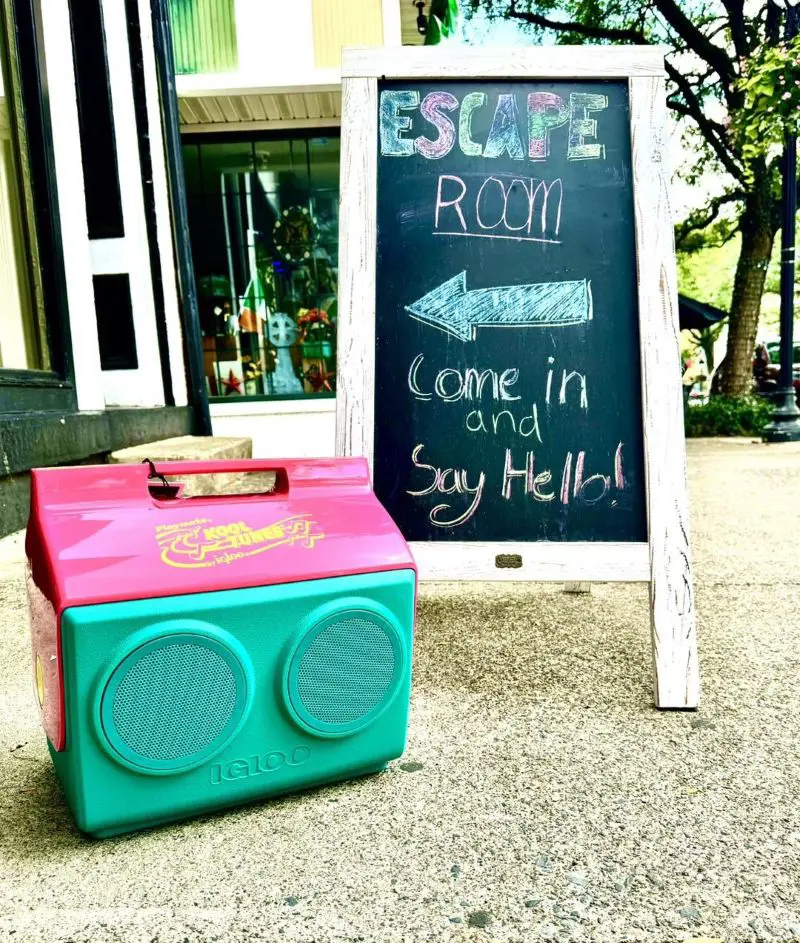 ESCAPE
ROOM
Come in
and
Say Hello!
Playmate
KOOL
TUNES
by Igloo
IGLOO